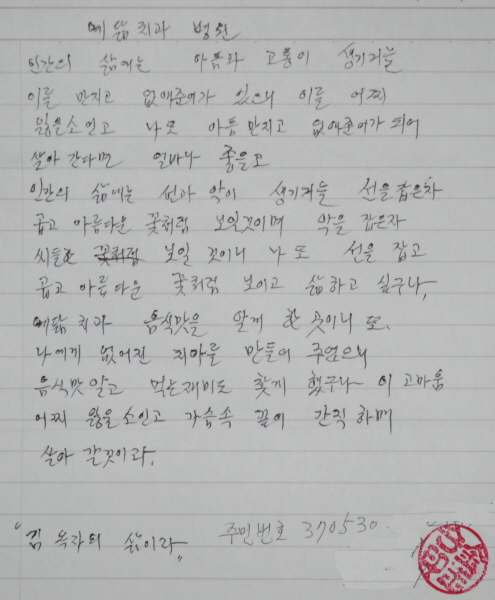 예닮치과 병원
인간의 삶에는 아픔과 고통이 생기거늘
이를 만지고 없애준이가 있으니 이를 어찌
잃을소인고 나또 아픔 만지고 없애준이가 되어
살아 간다면 얼마나 좋을고
인간의 삶에는 선과 악이 생기거늘 선을 잡은자
곱고 아름다운 꽃처럼 보일것이며 악을 잡은자
시들은 꽃처럼 보일 것이니 나 또 선을 잡고
곱고 아름다운 꽃처럼 보이고 삶하고 싶구나,
예닮치과 음식맛을 알게 한 곳이니 또.
나에게 없어진 치아를 만들어 주었으니
음식맛 알고 먹는재미도 찾게 했구나 이 고마움
어찌 잃을소인고 가슴속 깊이 간직 하며
살아 갈것이라.
"김 옥자의 삶이라" 주민번호 370530.